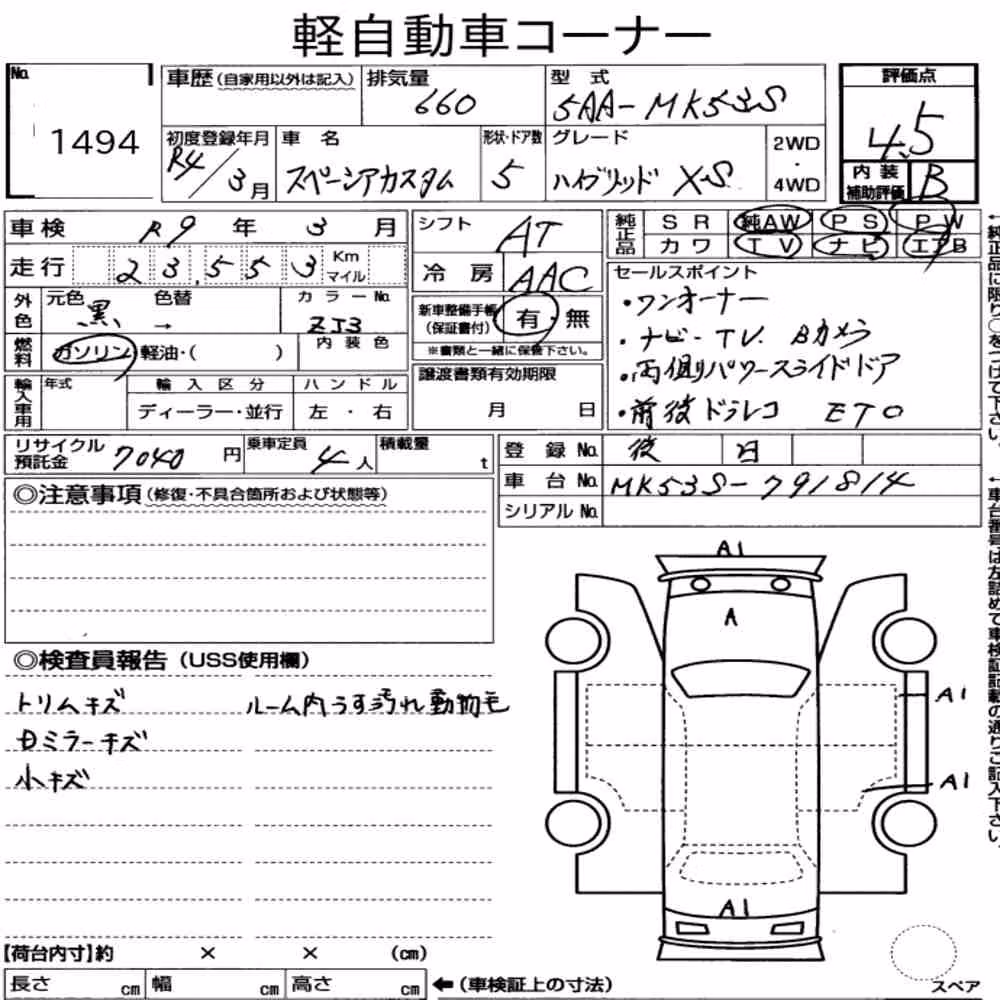 軽自動車コーナー
No. 1494
車歴 (自家用以外は記入) 排気量 660 型 式 5AA-MK53S
評価点 4.5
初度登録年月 R4/3月 車 名 スペーシアカスタム 形状・ドア数 5 グレード ハイブリッド XS 2WD・4WD
内装補助評価 B
車検 R9 年 3 月 シフト AT
純正品 SR 純AW PS PW
カワ TV ナビ エアB
走行 23,553 Km マイル 冷 房 AAC
セールスポイント
・ワンオーナー
・ナビ-TV. Bカメラ
・両側パワースライドドア
・前後ドラレコ ETC
外色 元色 黒 色替 → カラーNo. ZJ3
新車整備手帳(保証書付) 有・無
※書類と一緒に保管下さい。
燃料 ガソリン・軽油・( ) 内装色
譲渡書類有効期限
月 日
輸入車用 年式 輸入区分 ハンドル
ディーラー・並行 左・右
リサイクル預託金 7040 円 乗車定員 4 人 積載量 t
登 録 No. 後 日
車 台 No. MK53S-791814
シリアル No.
◎注意事項 (修復・不具合箇所および状態等)
◎検査員報告 (USS使用欄)
トリムキズ ルーム内うす汚れ動物毛
Dミラーキズ
小キズ
A1
A
A1
A1
A1
【荷台内寸】約 × × (cm)
長さ cm 幅 cm 高さ cm ←(車検証上の寸法)
スペア
←純正品に限り○をつけて下さい。
←車台番号は左詰めで車検証記載の通りご記入下さい。